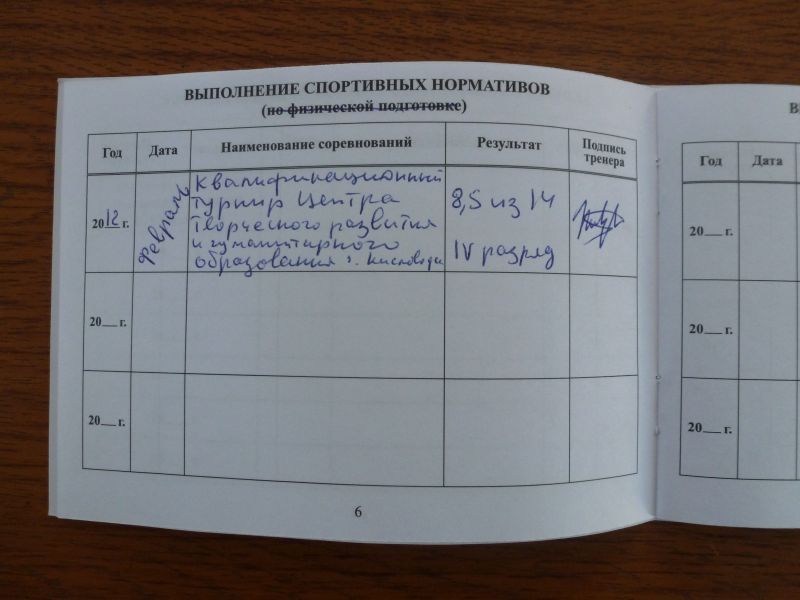 ВЫПОЛНЕНИЕ СПОРТИВНЫХ НОРМАТИВОВ
(по физической подготовке)
Год Дата Наименование соревнований Результат Подпись тренера
2012 г. Февраль
Квалификационный
турнир Центра
творческого развития
и гуманитарного
образования г. Кисловодск
8,5 из 14
IV разряд
20__ г.
20__ г.
6
В
Год Дата
20__ г.
20__ г.
20__ г.